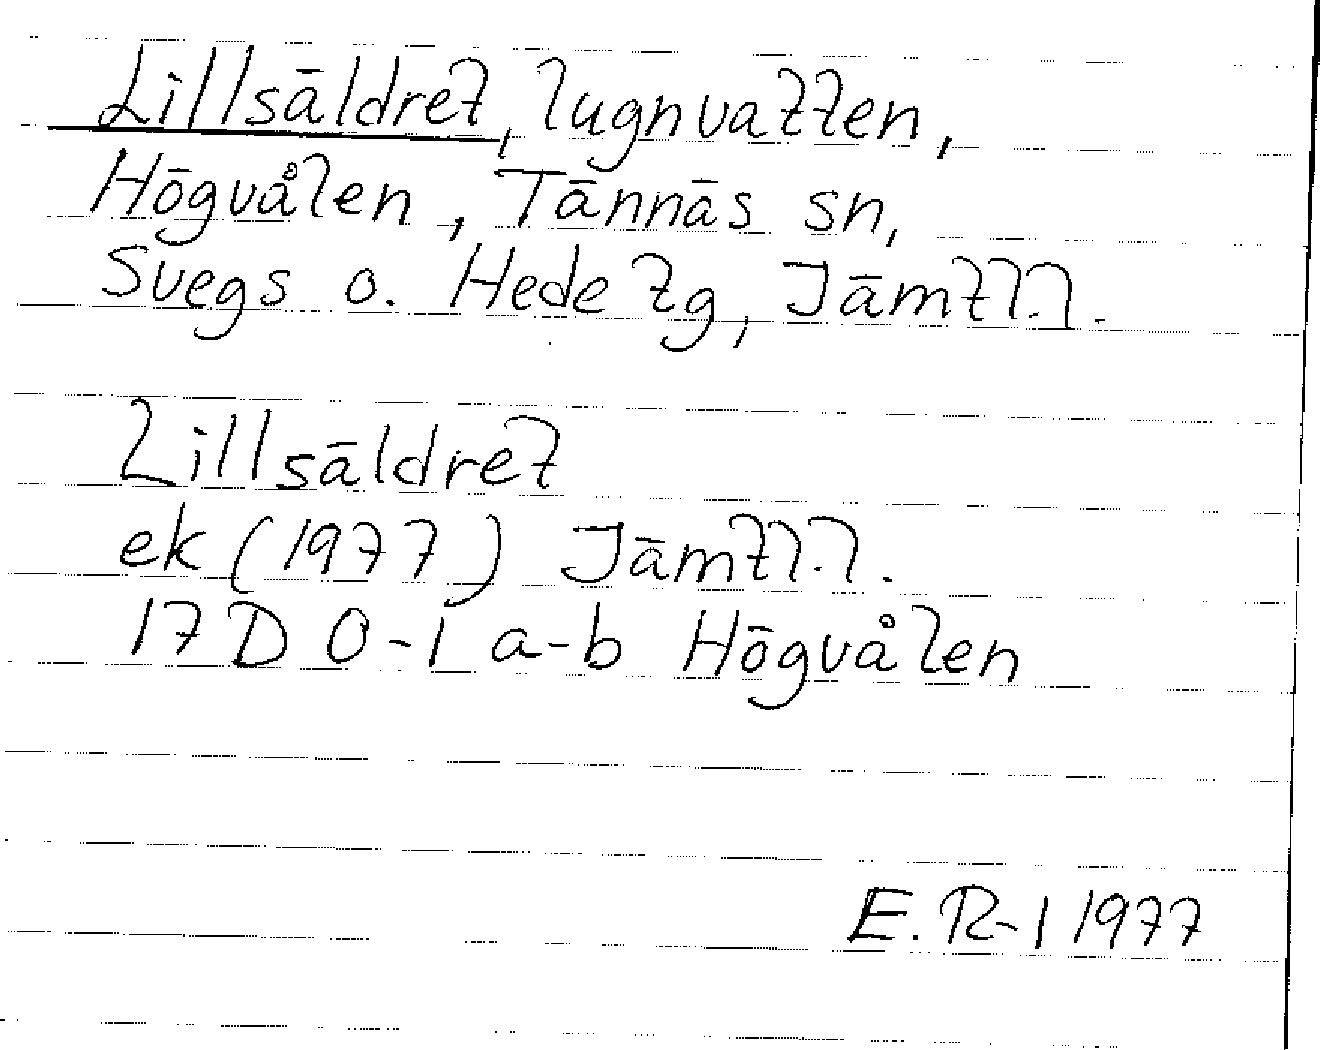 Lillsäldret, lugnvatten,
Högvålen, Tännäs sn,
Svegs o. Hede tg, Jämtl.l.
Lillsäldret
ek (1977) Jämtl.l.
17 D 0-1 a-b Högvålen
E. R-l 1977